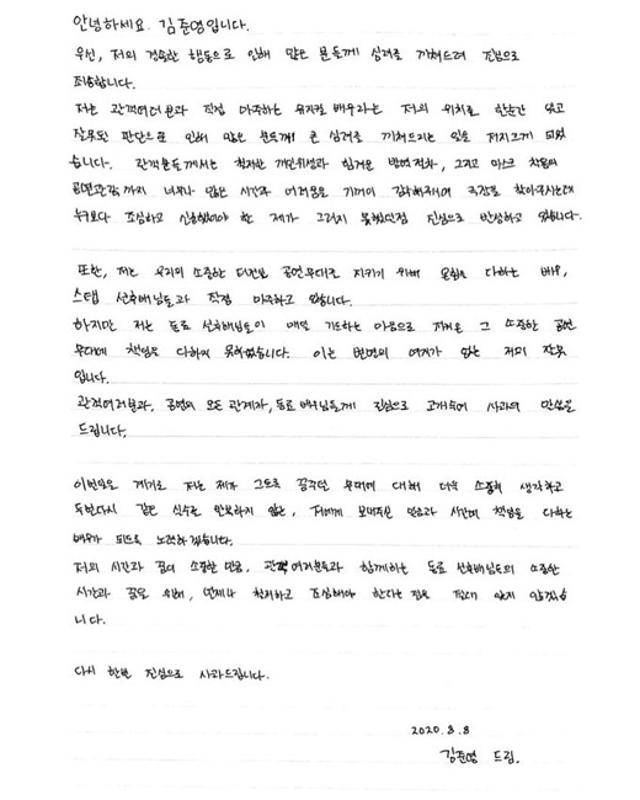 안녕하세요. 김준영입니다.
우선, 저의 경솔한 행동으로 인해 많은 분들께 심려를 끼쳐드려 진심으로
죄송합니다.
저는 관객여러분과 직접 마주하는 뮤지컬 배우라는 저의 위치를 한순간 잊고
잘못된 판단으로 인해 많은 분들께 큰 심려를 끼쳐드리는 일을 저지르게 되었
습니다. 관객분들께서는 철저한 개인위생과 힘겨운 방역절차, 그리고 마스크 착용의
공연관람까지 너무나 많은 시간과 어려움을 기꺼이 감수해주시며 극장을 찾아주시는데
누구보다 조심하고 신중했어야 한 제가 그러지 못했던점 진심으로 반성하고 있습니다.
또한, 저는 우리의 소중한 터전인 공연무대를 지키기 위해 온힘을 다하는 배우,
스탭 선후배님들과 직접 마주하고 있습니다.
하지만 저는 동료 선후배님들이 매일 기도하는 마음으로 지켜온 그 소중한 공연
무대에 책임을 다하지 못하였습니다. 이는 변명의 여지가 없는 저의 잘못
입니다.
관객여러분과, 공연의 모든 관계자, 동료 배우님들께 진심으로 고개숙여 사과의 말씀을
드립니다.
이번일을 계기로 저는 제가 그토록 꿈꾸던 무대에 대해 더욱 소중히 생각하고
두번다시 같은 실수를 반복하지 않는, 저에게 보내주신 믿음과 시간에 책임을 다하는
배우가 되도록 노력하겠습니다.
저의 시간과 꿈이 소중한 만큼, 관객여러분들과 함께하는 동료 선후배님들의 소중한
시간과 꿈을 위해, 언제나 철저하고 조심해야 한다는 점을 절대 잊지 않겠습
니다.
다시 한번 진심으로 사과드립니다.
2020. 8. 8
김준영 드림.